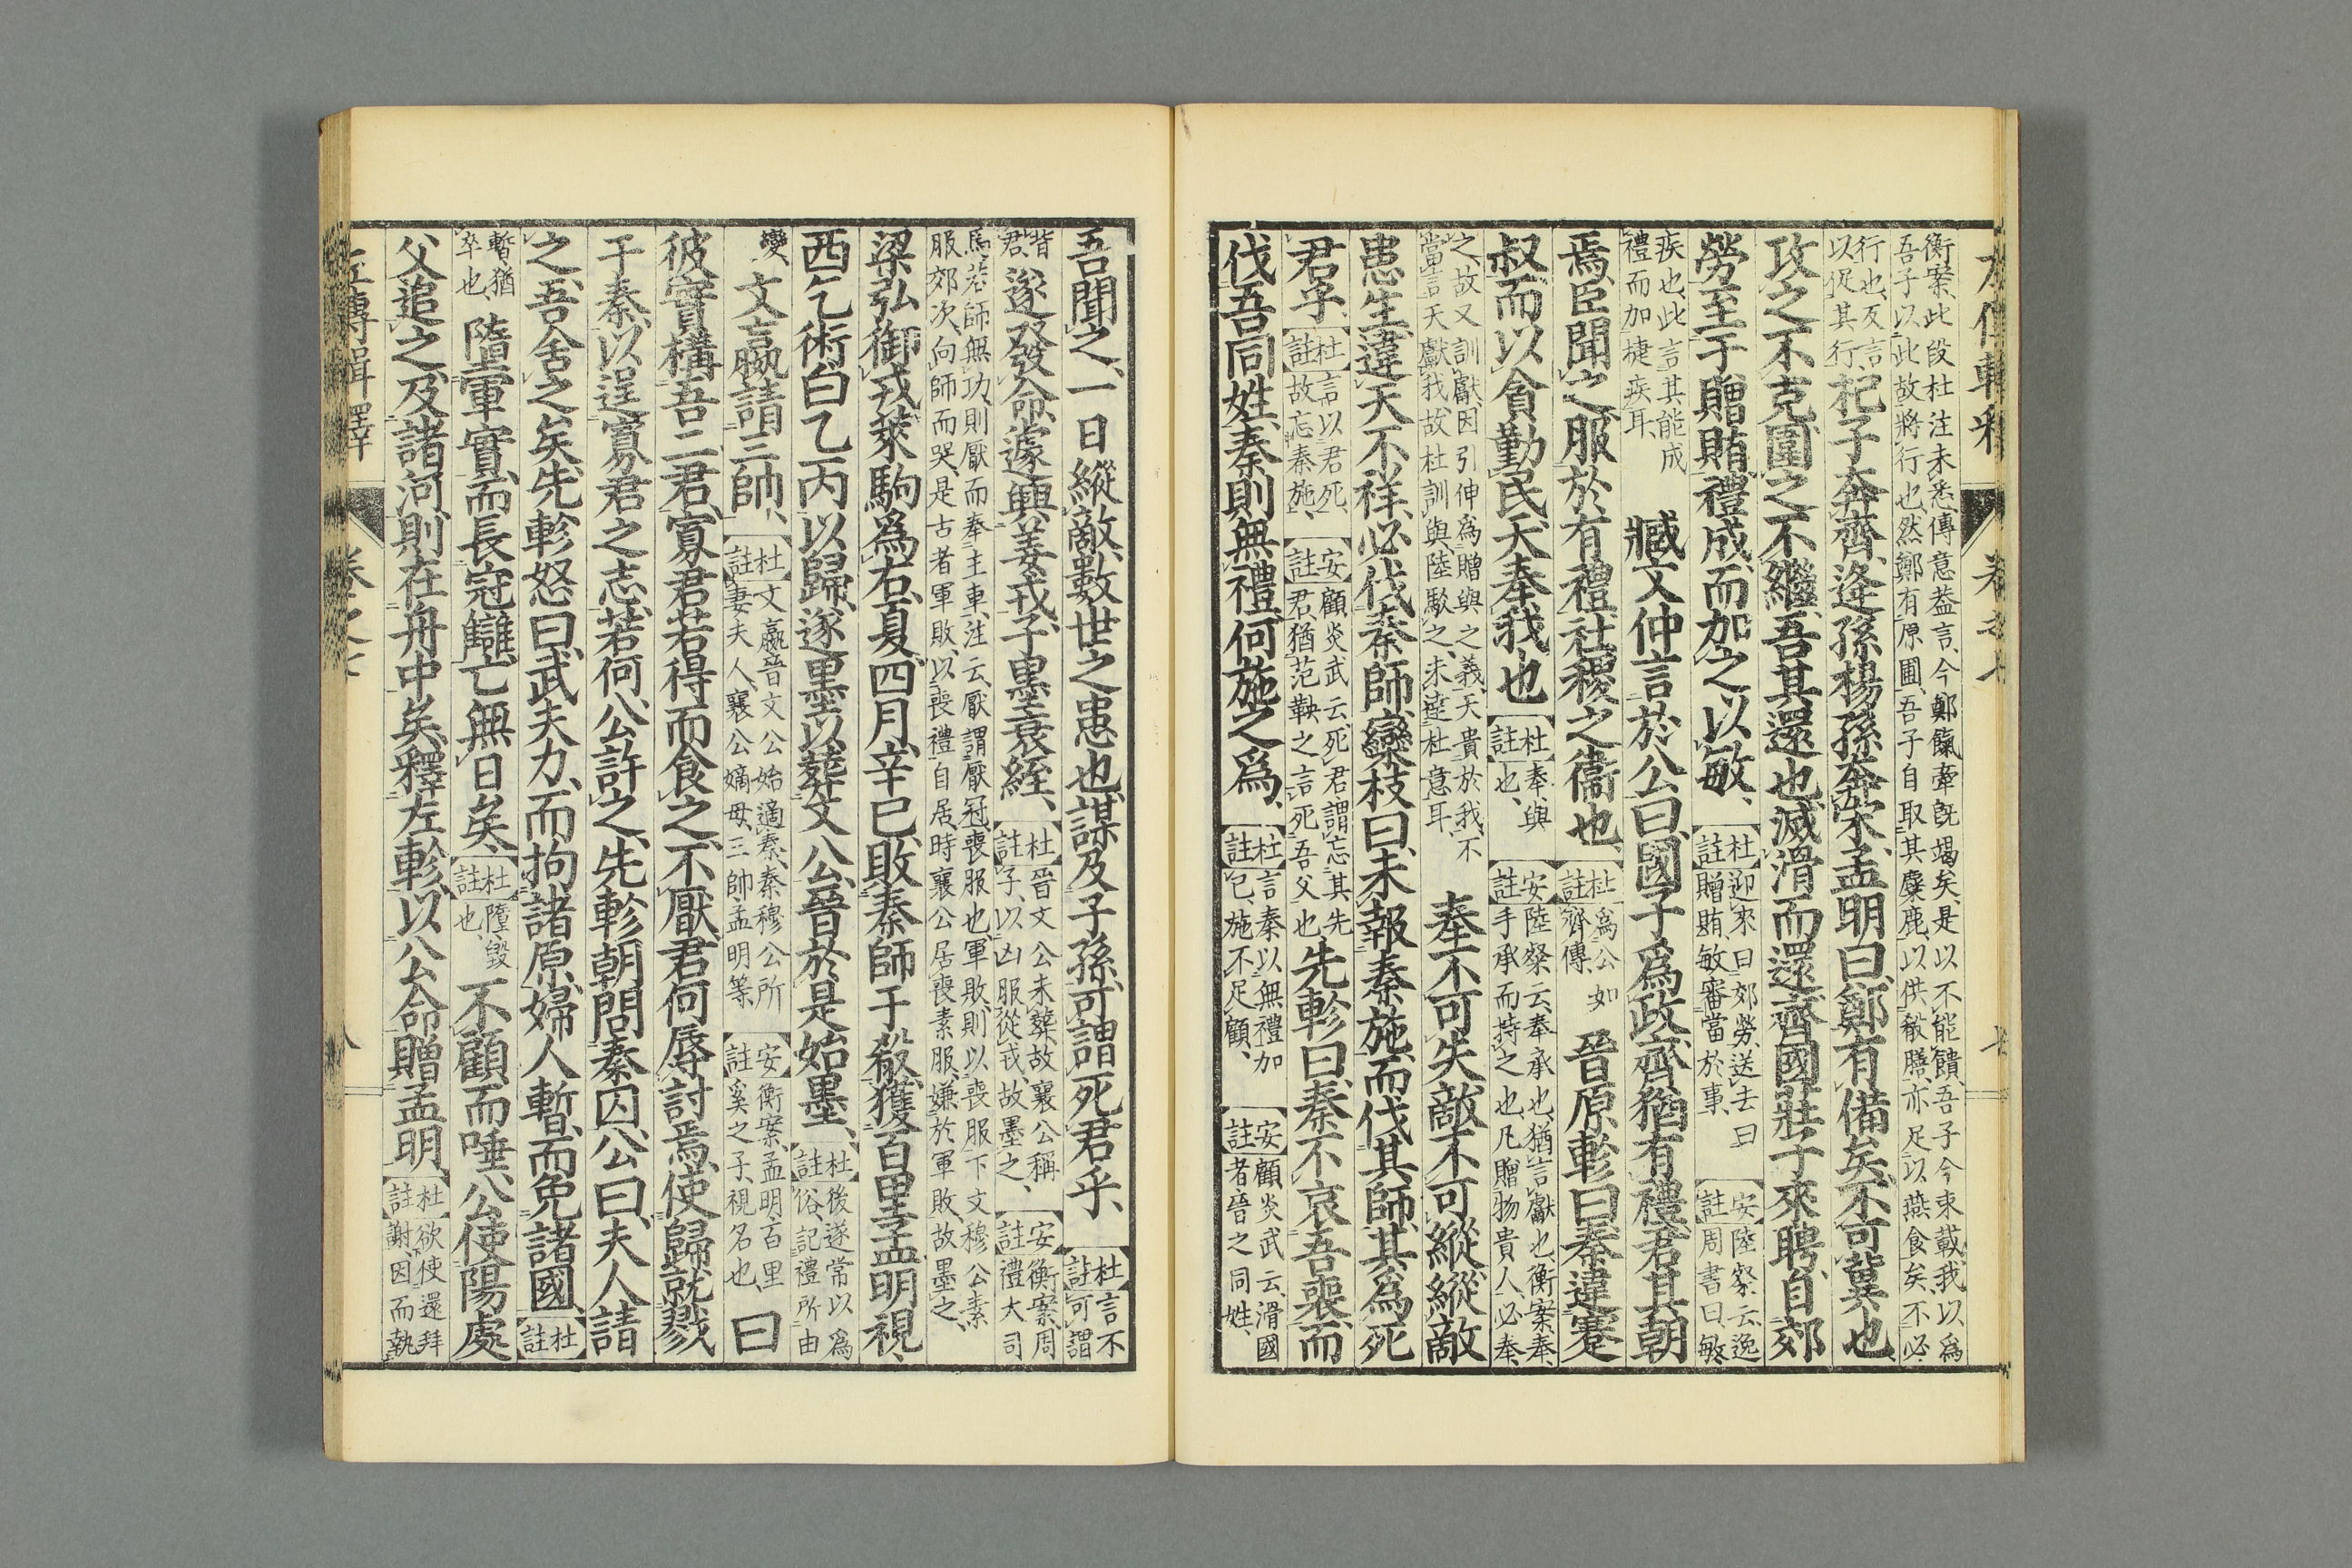 衡案、此段杜注未悉傳意、蓋言、今鄭餼牽既竭矣、是以不能饋、吾子今束載、我以爲
吾子以此故將行也、然鄭有原圃、吾子自取其麋鹿、以供殽膳、亦足以燕食矣、不必
行也、反言
以促其行、
杞子奔齊、逢孫楊孫奔宋、孟明曰、鄭有備矣、不可冀也、
攻之不克、圍之不繼、吾其還也、滅滑而還、齊國莊子來聘、自郊
勞至于贈賄、禮成而加之以敏、
杜註
迎來曰郊勞、送去曰
贈賄、敏審當於事、
安註
陸粲云、逸
周書曰、敏、
疾也、此言其能成
禮而加捷疾耳、
臧文仲言於公曰、國子爲政、齊猶有禮、君其朝
焉、臣聞之、服於有禮、社稷之衞也、
杜註
爲公如
齊傳、
晉原軫曰、秦違蹇
叔、而以貪勤民、天奉我也、
杜註
奉、與
也、
安註
陸粲云、奉承也、猶言獻也、衡案、奉、
手承而持之也、凡贈物貴人必奉、
之、故又訓獻、因引伸爲贈與之義、天貴於我、不
當言天獻我、故杜訓與、陸駁之、未達杜意耳、
奉不可失、敵不可縱、縱敵
患生、違天不祥、必伐秦師、欒枝曰、未報秦施、而伐其師、其爲死
君乎、
杜註
言以君死、
故忘秦施、
安註
顧炎武云、死君、謂忘其先
君、猶范鞅之言死吾父也
先軫曰、秦不哀吾喪、而
伐吾同姓、秦則無禮、何施之爲、
杜註
言秦以無禮加
己、施不足顧、
安註
顧炎武云、滑國
者晉之同姓、
吾聞之、一日縱敵、數世之患也、謀及子孫、可謂死君乎、
杜註
言不
可謂
背
君、
遂發命、遽興姜戎、子墨衰絰、
杜註
晉文公未葬、故襄公稱
子、以凶服從戎、故墨之、
安註
衡案、周
禮大司
馬、若師無功、則厭而奉主車、注云、厭謂厭冠、喪服也、軍敗、則以喪服、下文穆公素
服郊次、向師而哭、是古者軍敗、以喪禮自居、時襄公居喪素服、嫌於軍敗、故墨之、
梁弘御戎、萊駒爲右、夏、四月、辛巳、敗秦師于殽、獲百里孟明視、
西乞術白乙丙以歸、遂墨以葬文公、晉於是始墨、
杜註
後遂常以爲
俗、記禮所由
變、
文嬴請三帥、
杜註
文嬴晉文公始適秦、秦穆公所
妻夫人、襄公嫡母、三帥、孟明等
安註
衡案、孟明、百里
奚之子、視名也、
曰
彼實構吾二君、寡君若得而食之、不厭、君何辱討焉、使歸就戮
于秦、以逞寡君之志、若何、公許之、先軫朝、問秦囚、公曰、夫人請
之、吾舍之矣、先軫怒曰、武夫力、而拘諸原、婦人暫、而免諸國、
杜註
暫、猶
卒也、
墮軍實、而長寇讎、亡無日矣、
杜註
墮、毀
也、
不顧而唾、公使陽處
父追之、及諸河、則在舟中矣、釋左軫、以公命贈孟明、
杜註
欲使還拜
謝、因而執
左傳輯釋
卷之七
八